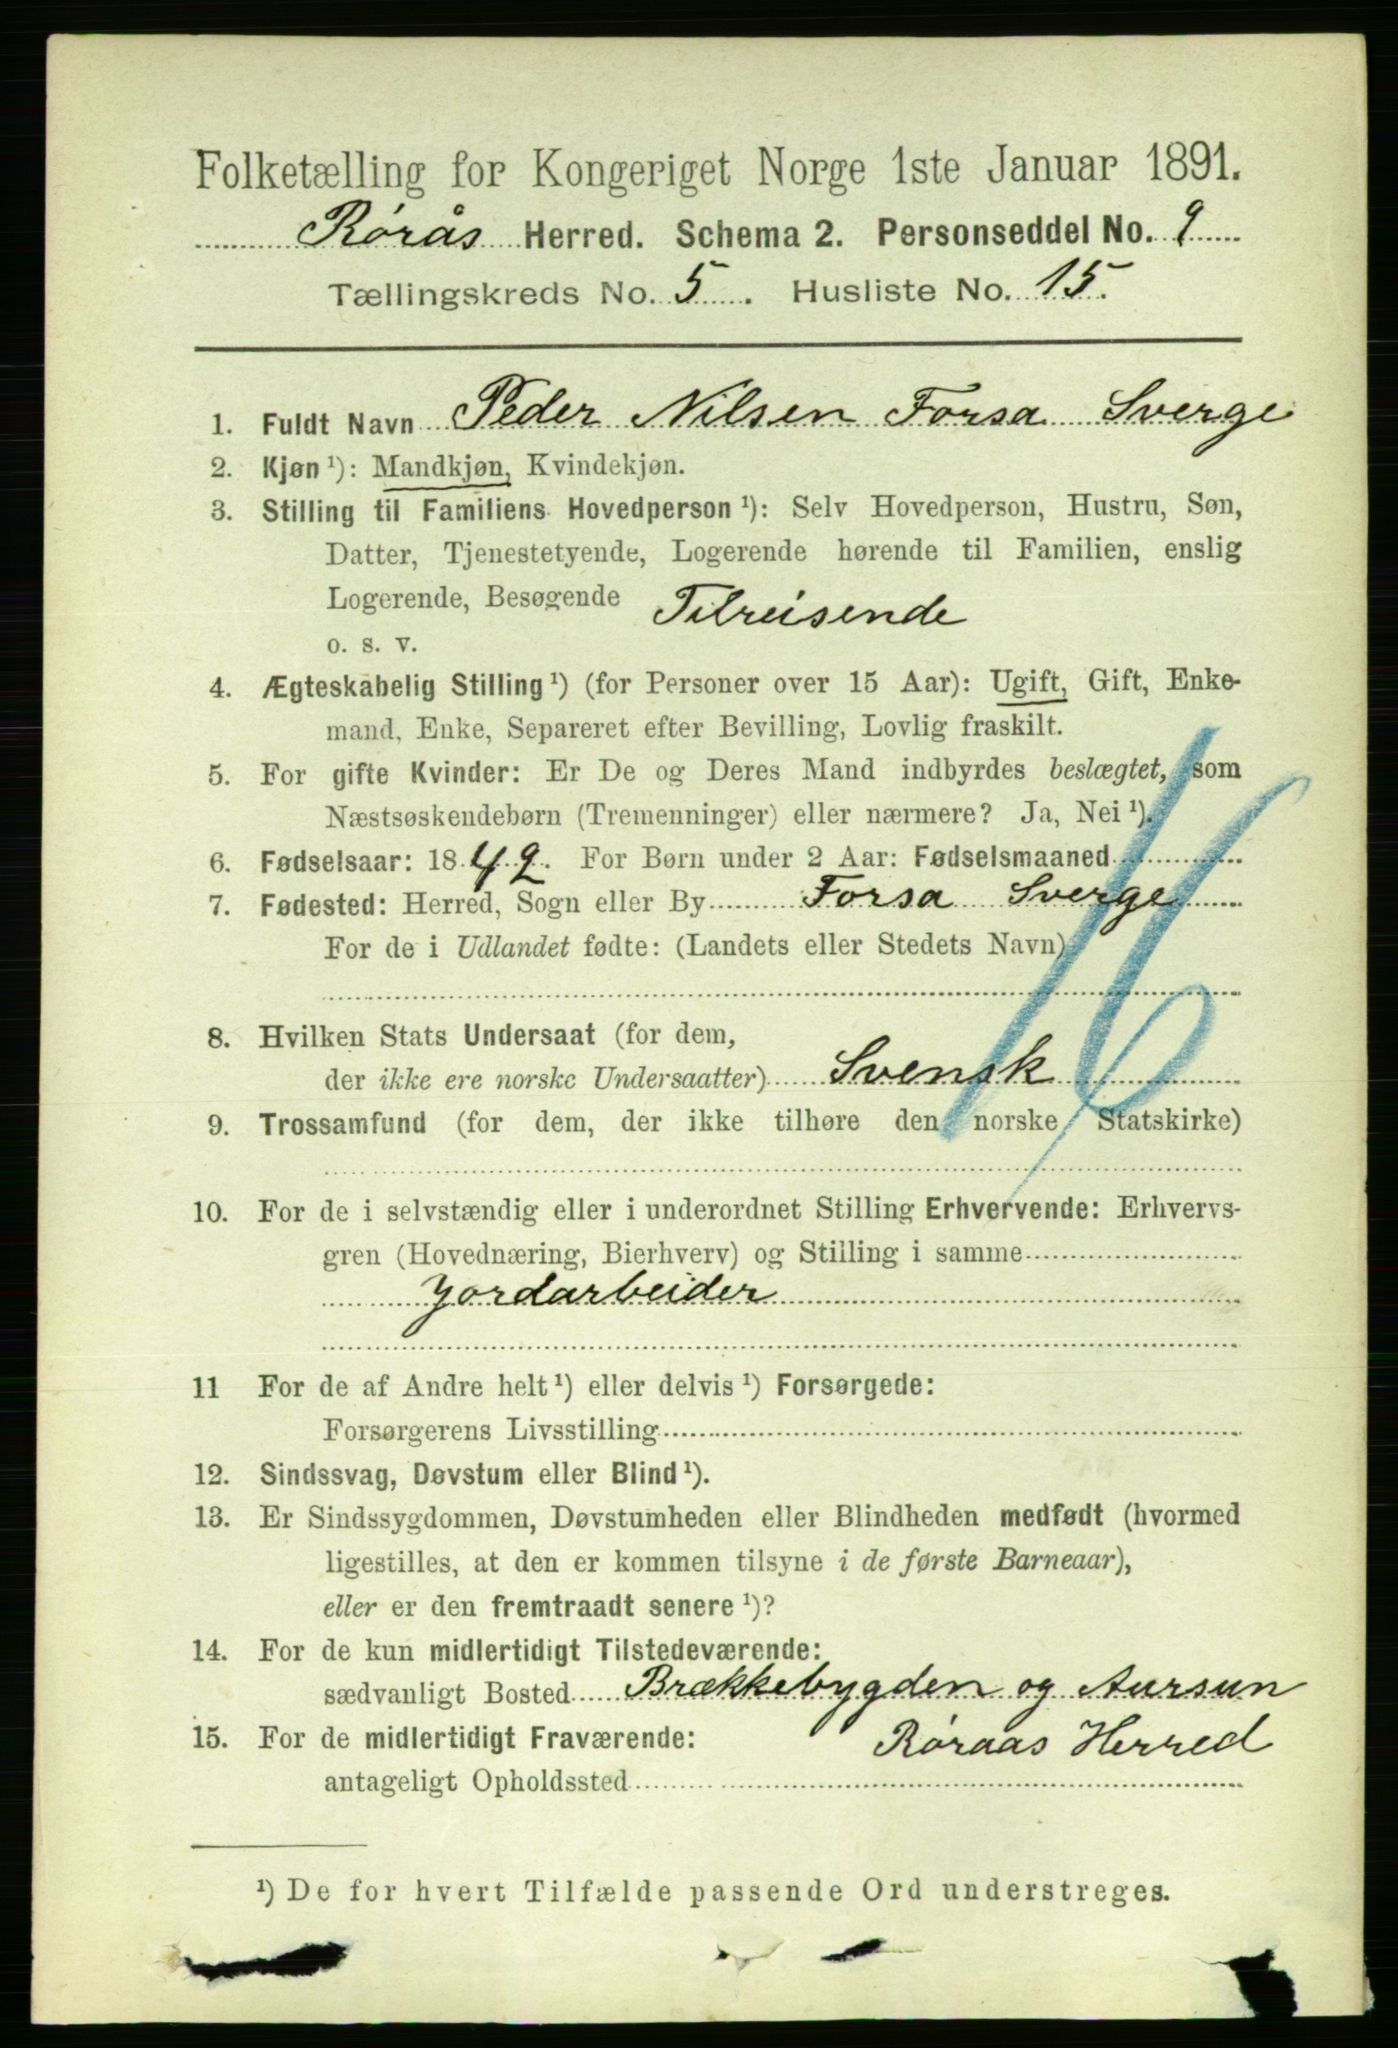 Folketælling for Kongeriget Norge 1ste Januar 1891.
Rørås Herred. Schema 2. Personseddel No. 9
Tællingskreds No. 5. Husliste No. 15.
1. Fuldt Navn Peder Nilsen Forsa Sverge
2. Kjøn ¹): Mandkjøn, Kvindekjøn.
3. Stilling til Familiens Hovedperson ¹): Selv Hovedperson, Hustru, Søn,
Datter, Tjenestetyende, Logerende hørende til Familien, enslig
Logerende, Besøgende Tilreisende
o. s. v.
4. Ægteskabelig Stilling ¹) (for Personer over 15 Aar): Ugift, Gift, Enke-
mand, Enke, Separeret efter Bevilling, Lovlig fraskilt.
5. For gifte Kvinder: Er De og Deres Mand indbyrdes beslægtet, som
Næstsøskendebørn (Tremenninger) eller nærmere? Ja, Nei ¹).
6. Fødselsaar: 1842. For Børn under 2 Aar: Fødselsmaaned
7. Fødested: Herred, Sogn eller By Forsa Sverge
For de i Udlandet fødte: (Landets eller Stedets Navn)
16
8. Hvilken Stats Undersaat (for dem,
der ikke ere norske Undersaatter) Svensk
9. Trossamfund (for dem, der ikke tilhøre den norske Statskirke)
10. For de i selvstændig eller i underordnet Stilling Erhvervende: Erhvervs-
gren (Hovednæring, Bierhverv) og Stilling i samme
Jordarbeider
11 For de af Andre helt ¹) eller delvis ¹) Forsørgede:
Forsørgerens Livsstilling
12. Sindssvag, Døvstum eller Blind ¹).
13. Er Sindssygdommen, Døvstumheden eller Blindheden medfødt (hvormed
ligestilles, at den er kommen tilsyne i de første Barneaar),
eller er den fremtraadt senere ¹)?
14. For de kun midlertidigt Tilstedeværende:
sædvanligt Bosted Brækkebygden og Aursun
15. For de midlertidigt Fraværende: Røraas Herred
antageligt Opholdssted
¹) De for hvert Tilfælde passende Ord understreges.